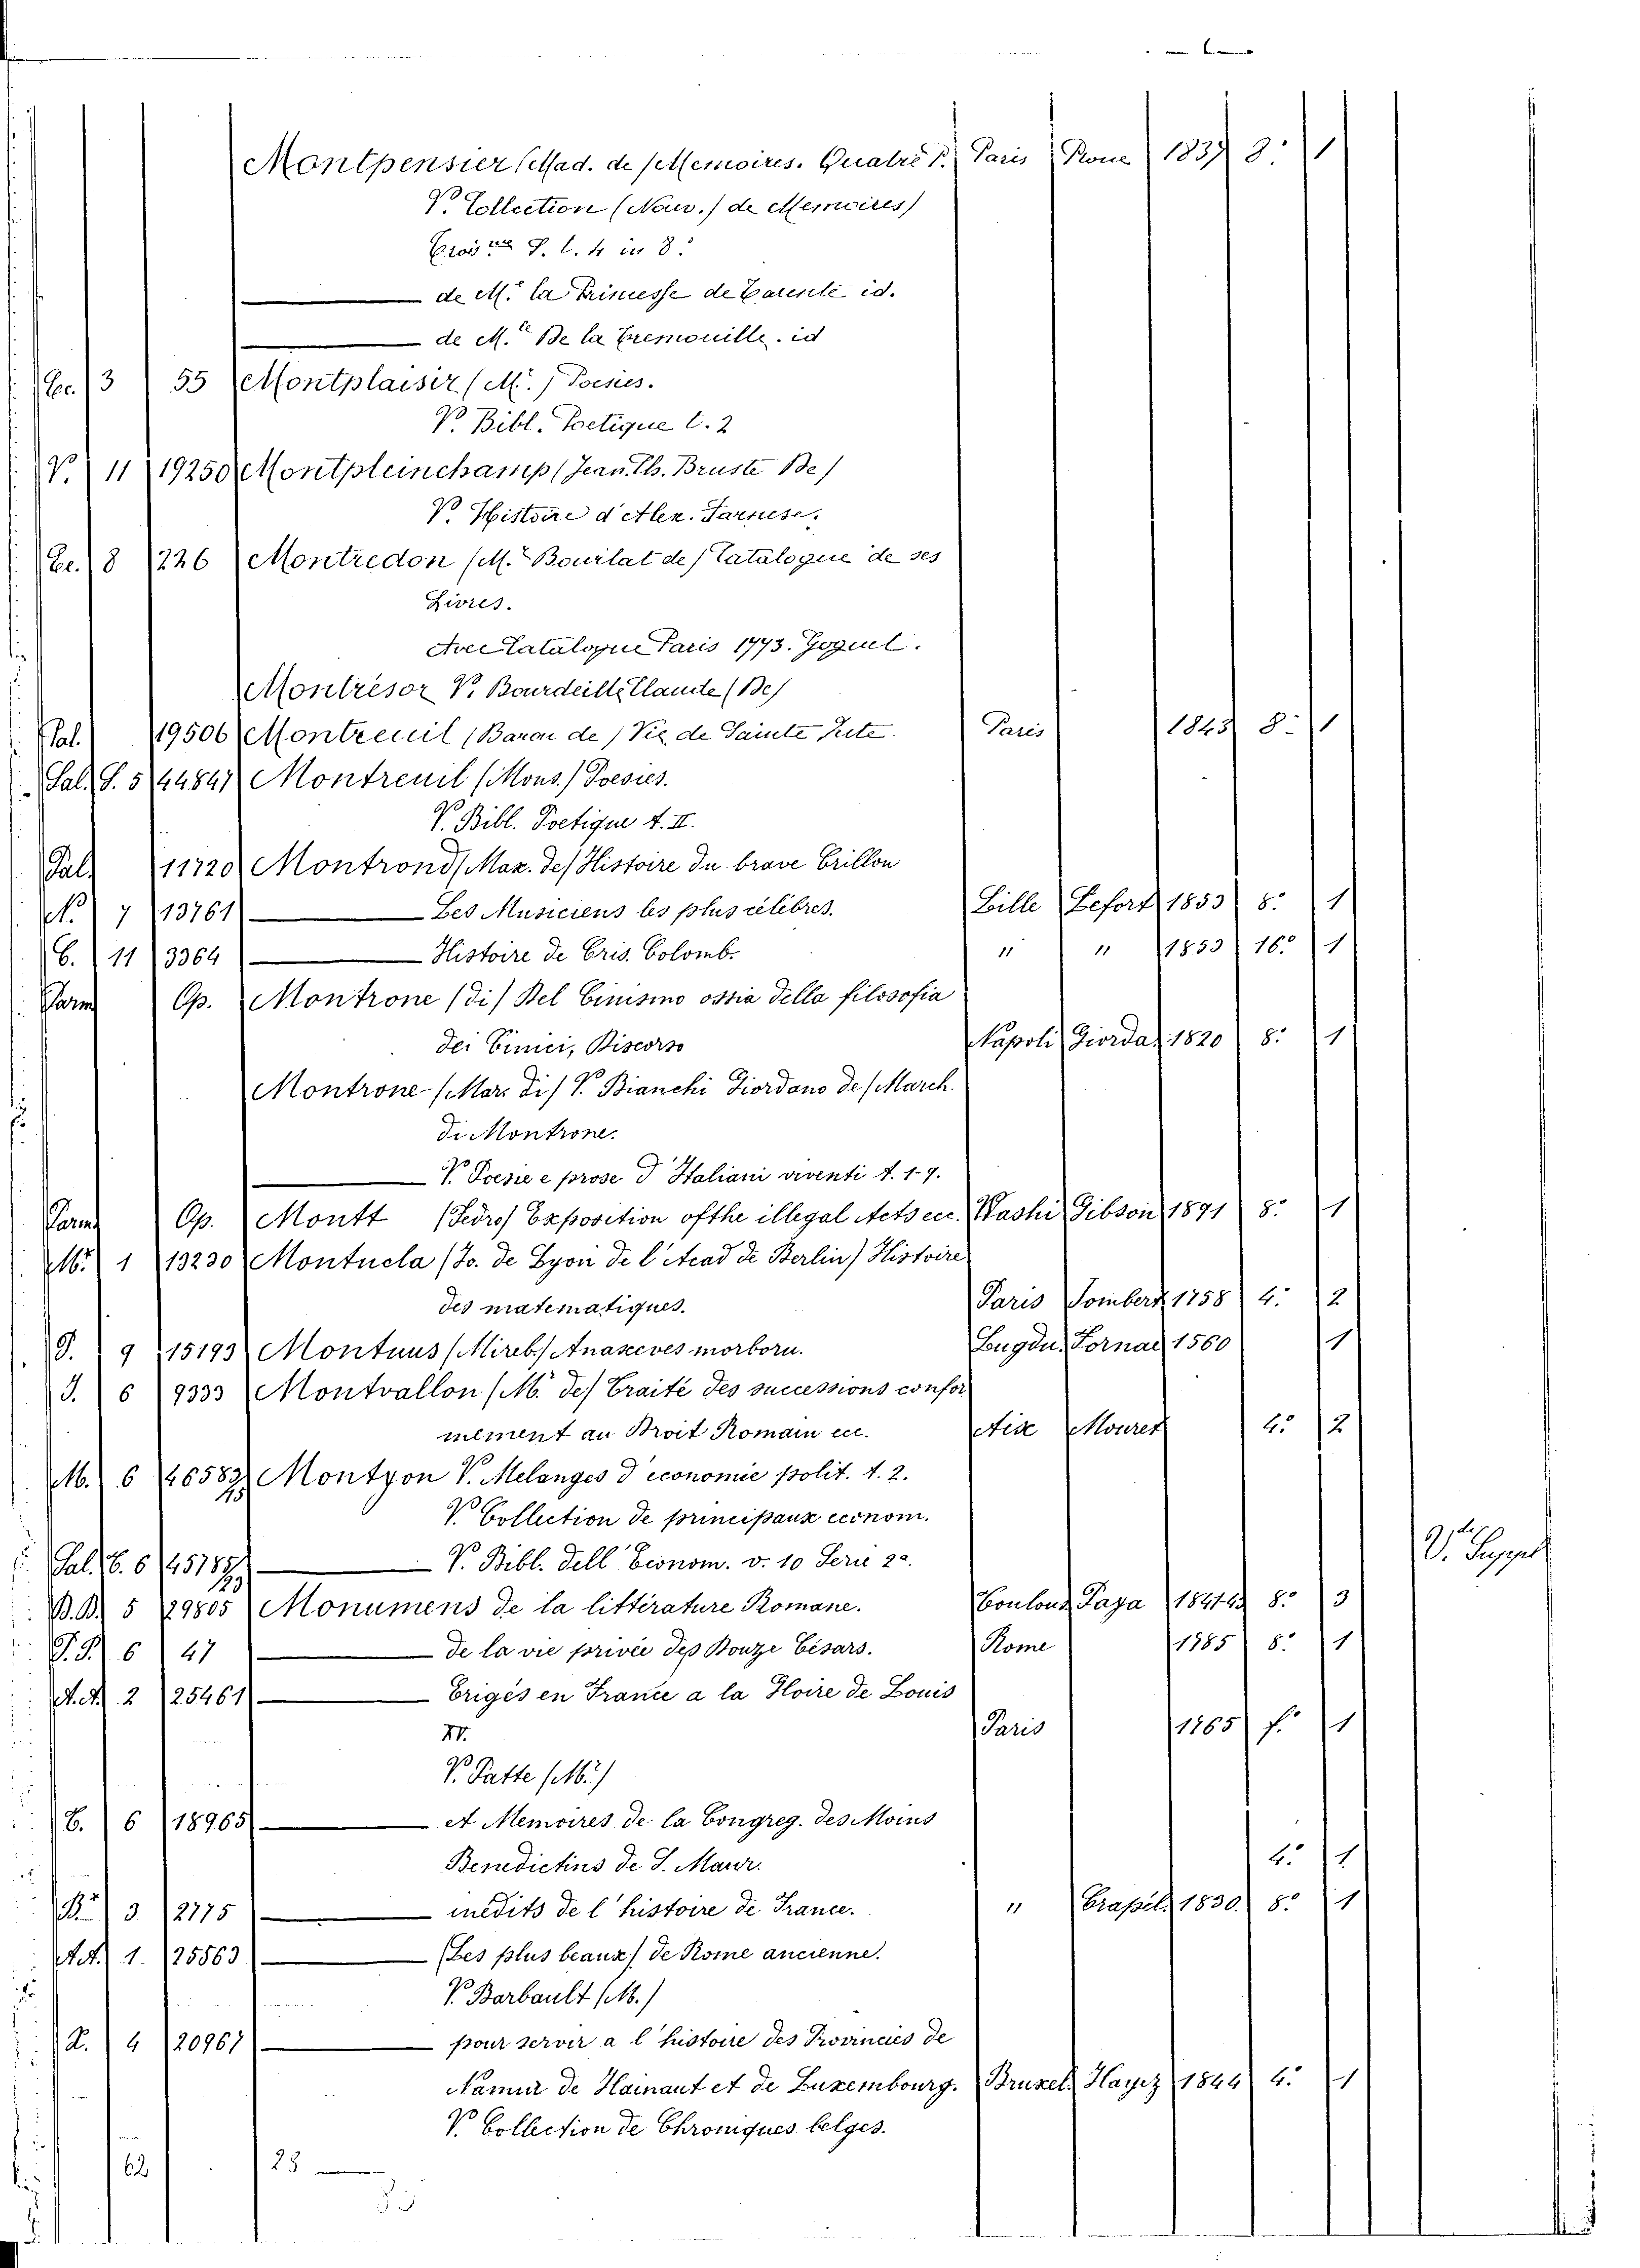 Montpensier (Mad. de) Memoires. Quatre P. Paris Rone 1837 8.º 1
V. Collection (Nouv.) de Memoires)
S. t. 4 in 8.º
de M. la Princesse de Tarente id.
de M. De la Tremouille. id
3 55 Montplaisir (M.r) Poesies.
V. Bibl. Poetique t. 2
V. 11 19250 Montpleinchamp (Jean Ch. Bruste De)
V. Histoire d'Alex. Farnese.
8 226 Montredon (M.r Bourlat de) Catalogue de ses
Livres.
Avec Catalogue Paris 1773. Goguel.
Montrésor V. Bourdeille Claude (De)
Pal. 19506 Montreuil (Baron de) Vie de Sainte Zite. Paris 1843 8.º 1
Sal. S. 5 44841 Montreuil (Mons.) Poesies.
V. Bibl. Poetique t. II.
Pal. 11720 Montrond (Max. de) Histoire du brave Crillon
N. 7 13761 Les Musiciens les plus célébres. Lille Lefort 1853 8.º 1
C. 11 3364 Histoire de Cris. Colomb. " " 1853 16.º 1
Parm Op. Montrone (di) Del Cinismo ossia della filosofia
dei Cinici, Discorso Napoli Giorda. 1820 8.º 1
Montrone (Mar. di) V. Bianchi Giordano de (March.
di Montrone.
V. Poesie e prose d'Italiani viventi t. 1-9.
Parm Op. Montt (Pedro) Exposition of the illegal Acts ecc. Washi. Gibson 1891 8.º 1
M. 1 13230 Montucla (Jo. de Lyon de l'Acad de Berlin) Histoire
des matematiques. Paris Jombert 1758 4.º 2
P. 9 15193 Montuus (Mireb.) Anasceves morboru. Lugdu. Tornae 1560 1
J. 6 9333 Montvallon (M.r de) Traité des successions confor
mement au Droit Romain ecc. Aix Mouret 4.º 2
M. 6 46582/45 Montyon V. Melanges d'economie polit. t. 2.
V. Collection de principaux econom.
Sal. C. 6 45187/23 V. Bibl. dell'Econom. v. 10 Serie 2.a
V.te Suppl
B.B. 5 29805 Monumens de la littérature Romane. Toulous. Paya 1841-43 8.º 3
P.P. 6 47 de la vie privée des Douze Césars. Rome 1785 8.º 1
A.A. 2 25461 Erigés en France a la Gloire de Louis
XV. Paris 1765 f.º 1
V. Patte (M.r)
C. 6 18965 et Memoires de la Congreg. des Moins
Benedictins de S. Maur. 4.º 1
3 2775 inedits de l'histoire de France. " Crapel. 1830. 8.º 1
A.A. 1. 25563 (Les plus beaux) de Rome ancienne.
V. Barbault (M.)
4 20967 pour servir a l'histoire des Provinces de
Namur de Hainaut et de Luxembourg. Bruxel. Hayez 1844 4.º 1
V. Collection de Chroniques belges.
62 28